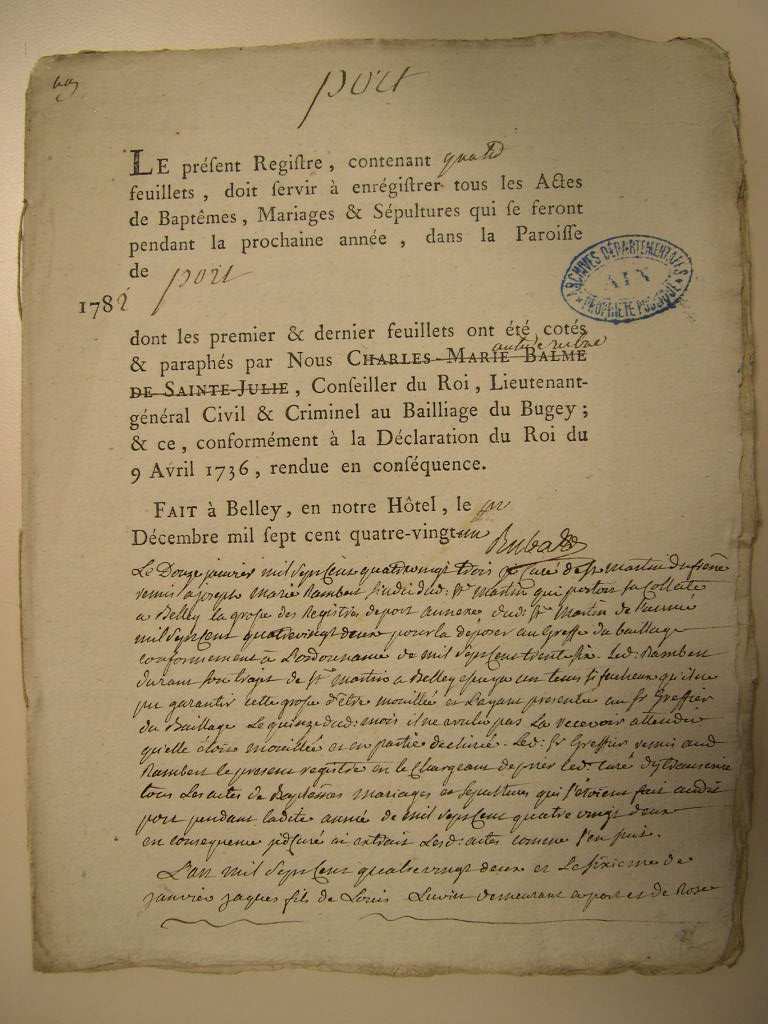 port
LE préſent Regiſtre, contenant quatre
feuillets, doit ſervir à enrégiſtrer tous les Actes
de Baptêmes, Mariages & Sépultures qui ſe feront
pendant la prochaine année, dans la Paroiſſe
de port
1782
ARCHIVES DÉPARTEMENTALES
AIN
PROPRIÉTÉ PUBLIQUE
dont les premier & dernier feuillets ont été cotés
& paraphés par Nous CHARLES-MARIE BALME
DE SAINTE-JULIE, Conſeiller du Roi, Lieutenant-
général Civil & Criminel au Bailliage du Bugey;
& ce, conformément à la Déclaration du Roi du
9 Avril 1736, rendue en conſéquence.
FAIT à Belley, en notre Hôtel, le
Décembre mil ſept cent quatre-vingt-un
Rubat
Le Douze janvier mil sept Cent quatrevingt trois Curé de st martin du frene
remis a joseph marie Rambert sindic dud: st martin qui portoit sa Collecte
a Belley la grosse des Registres de port annexe dud: st martin de l'année
mil sept Cent quatrevingt deux pour la déposer au Greffe du bailliage
conformement à L'ordonnance de mil sept Cent trente six. Led: Rambert
durant son trajet de st martin a Belley un tems si facheux qu'il ne
pu garantir cette grosse d'être mouillée et L'ayant presentée au sr Greffier
du Bailliage Le quinze dud: mois il ne voulu pas La recevoir attendu
qu'elle étoit mouillée et en partie déchirée. Led: sr Greffier remis aud
Rambert le present registre en le Chargeant de prier led: curé d'y transcrire
tous Les actes de Baptêmes mariages et sepultures qui s'etoient fait audit
port pendant ladite année de mil sept Cent quatre vingt deux
en consequence Curé ai extrait Lesd: actes comme s'en suit.
L'an mil sept Cent quatre vingt deux et Le sixieme de
janvier jaques fils de Louis demeurant a port et de Rose